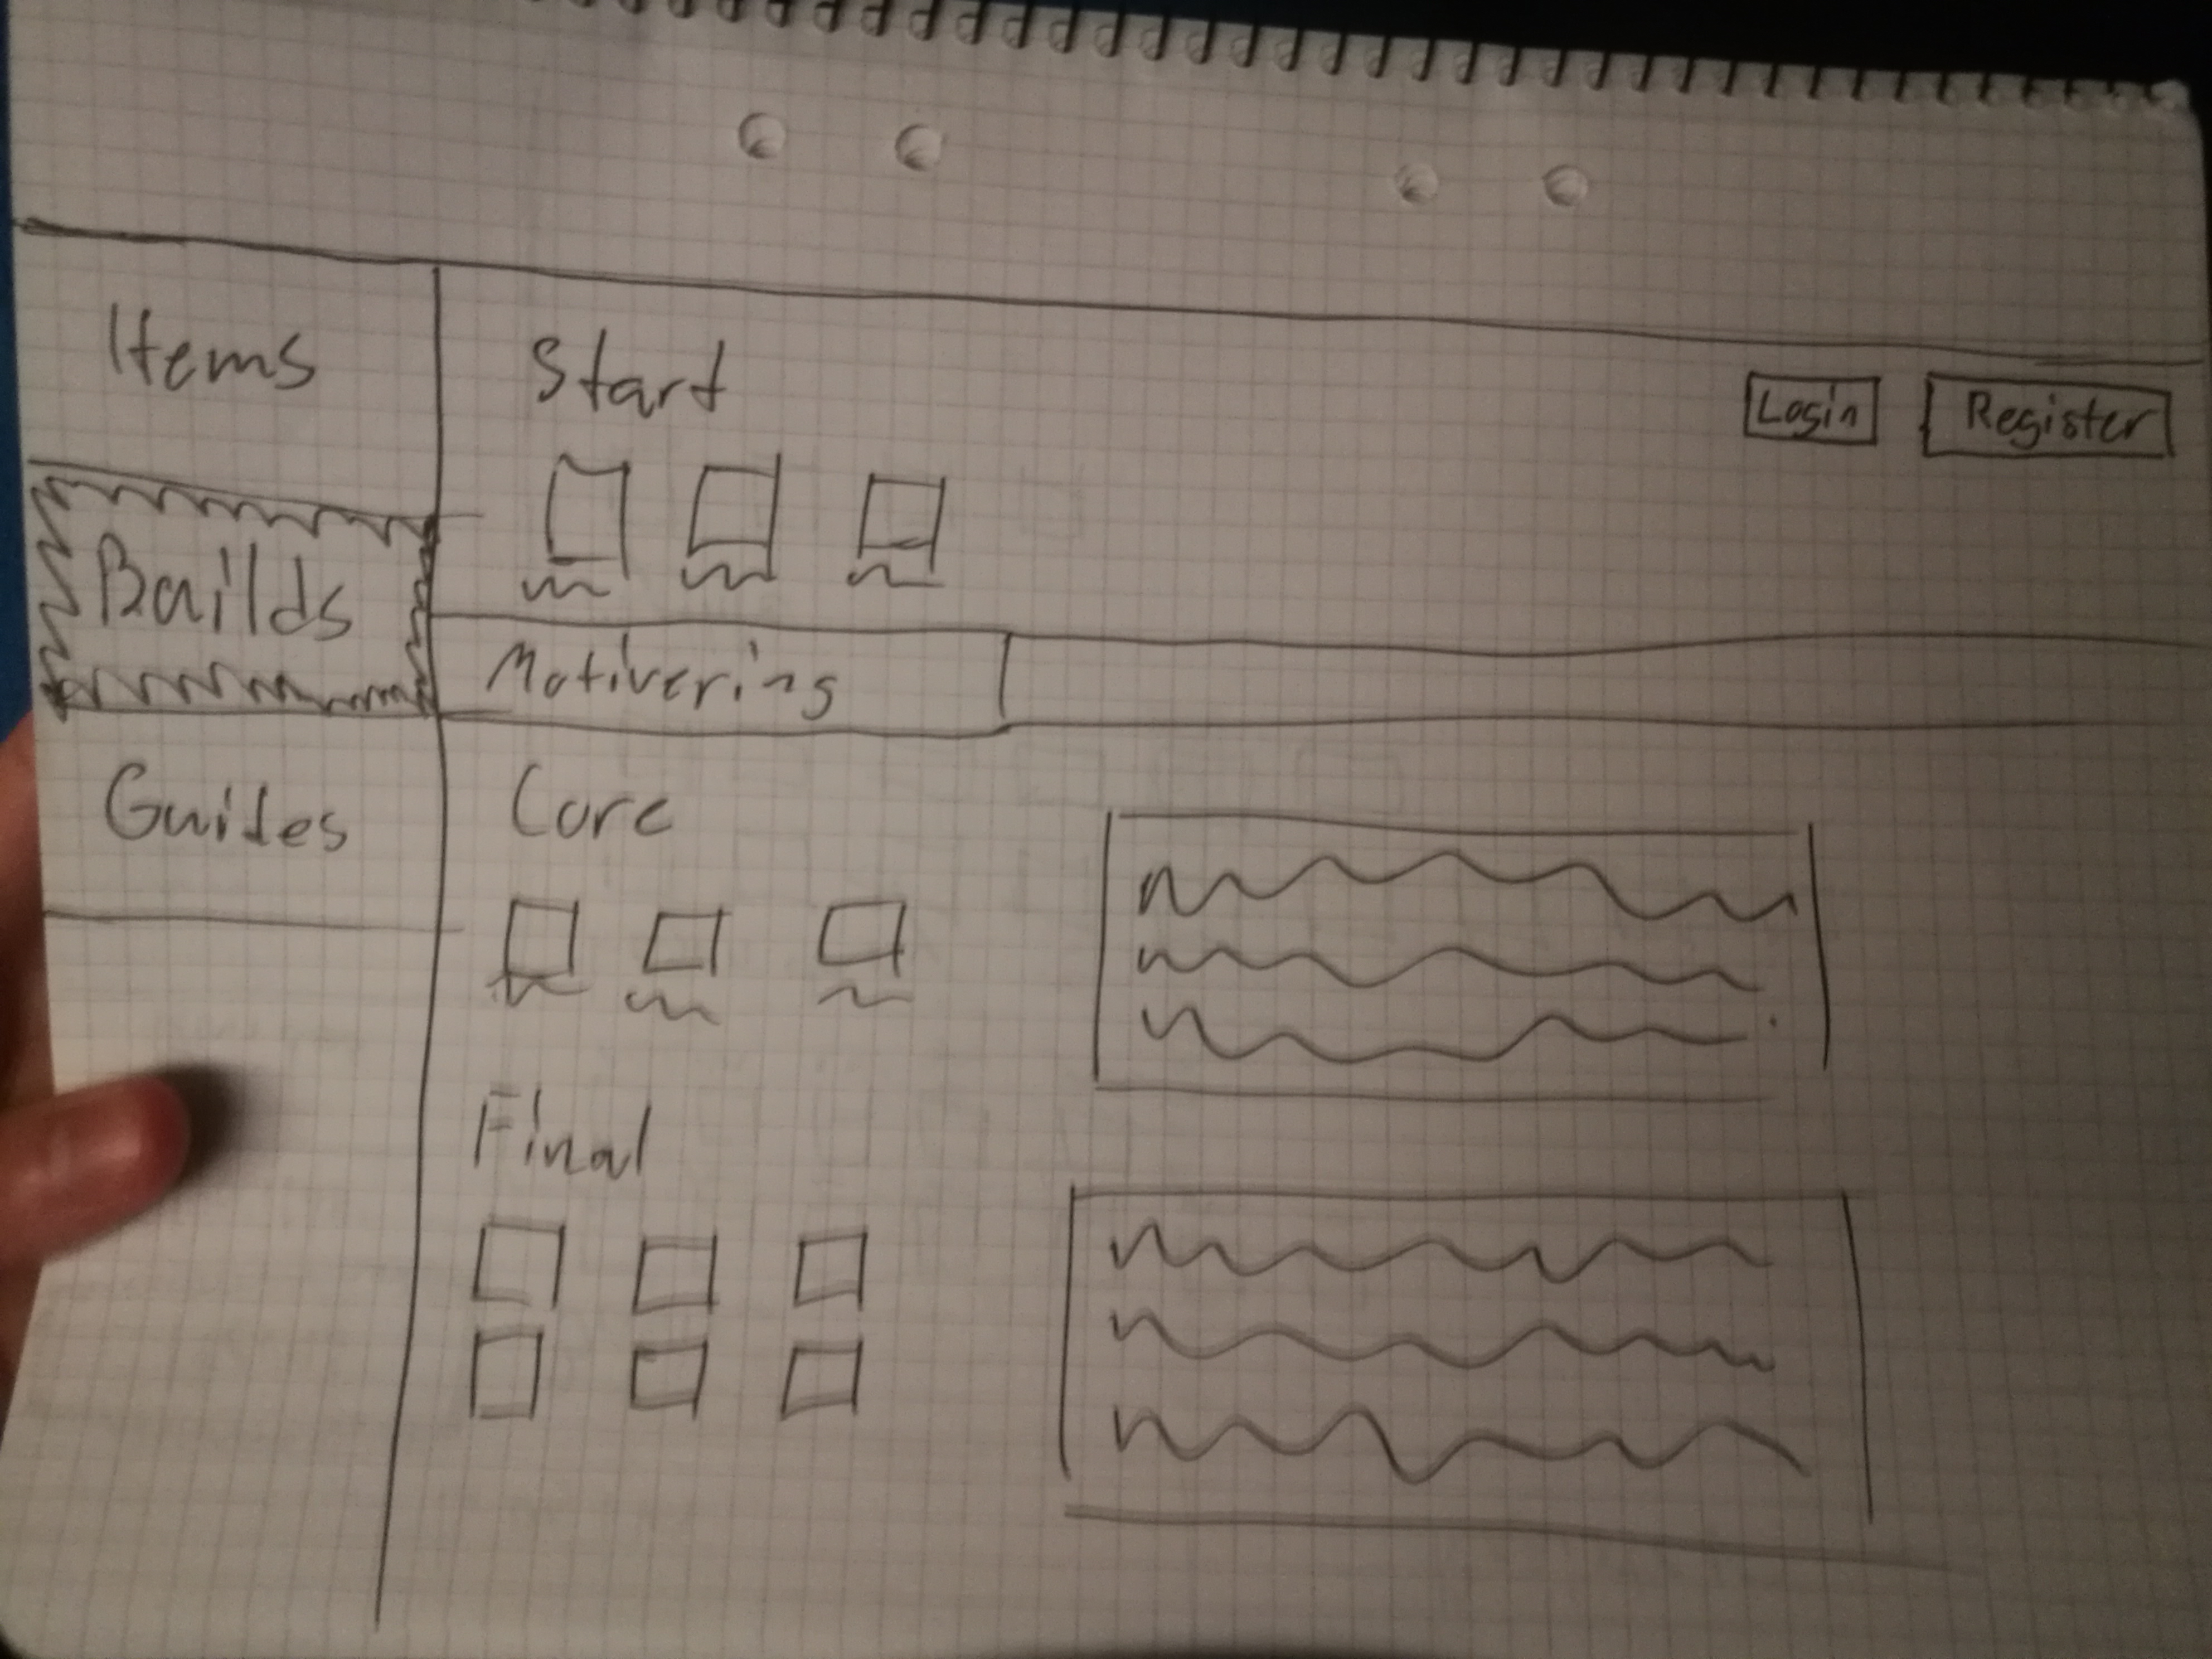 Items
Builds
Guides
Start
Login
Register
Motivering
Core
Final